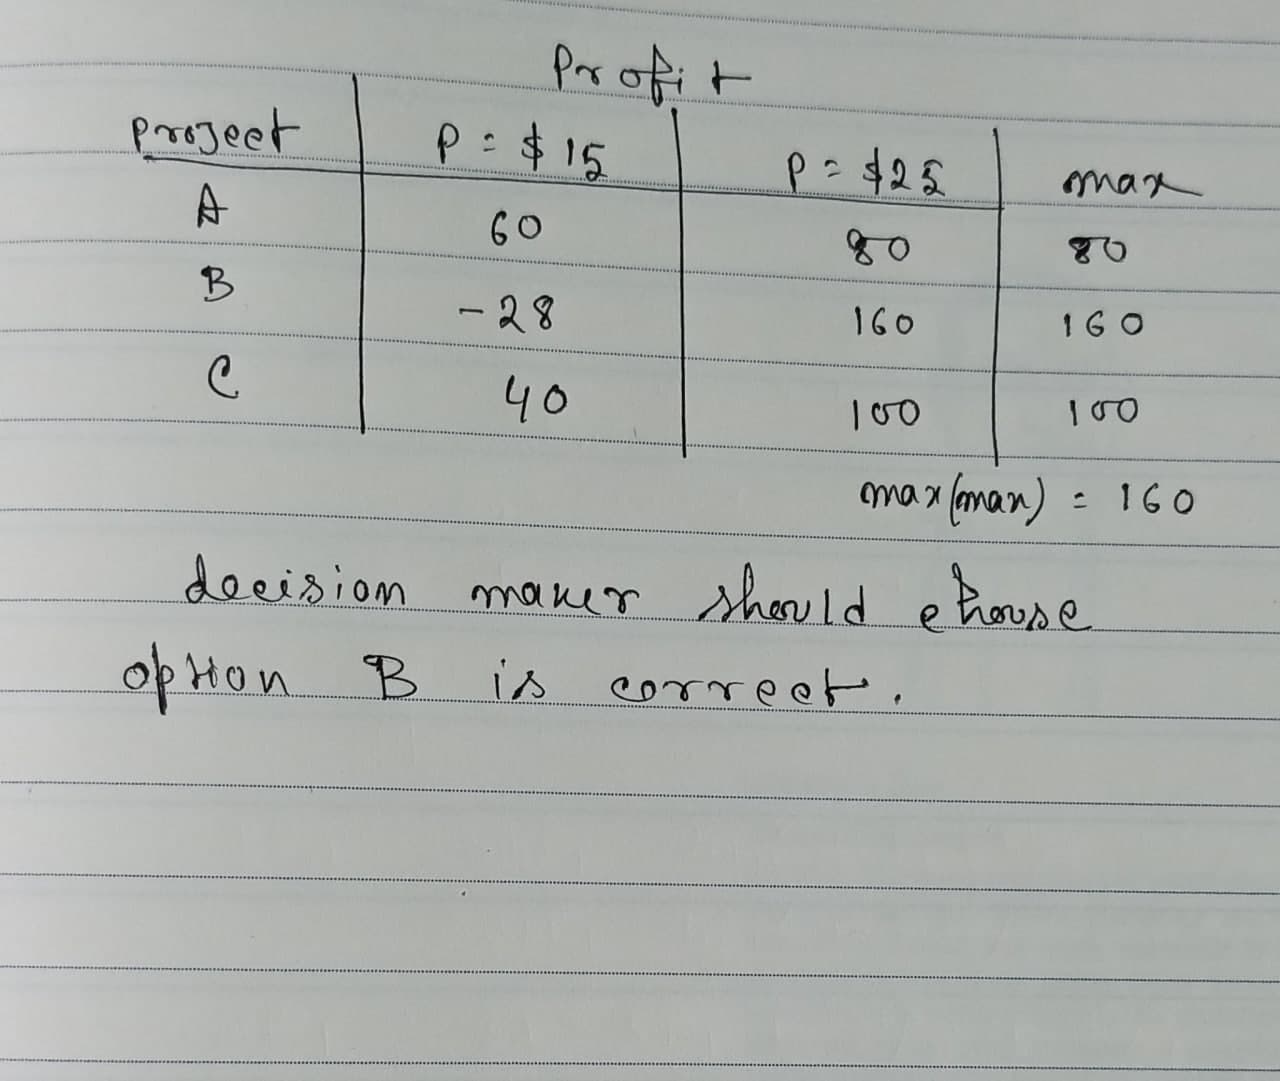 Profit
Project P = $15 P = $25 max
A 60 80 80
B -28 160 160
C 40 100 100
max(max) = 160
decision maker should choose
option B is correct.